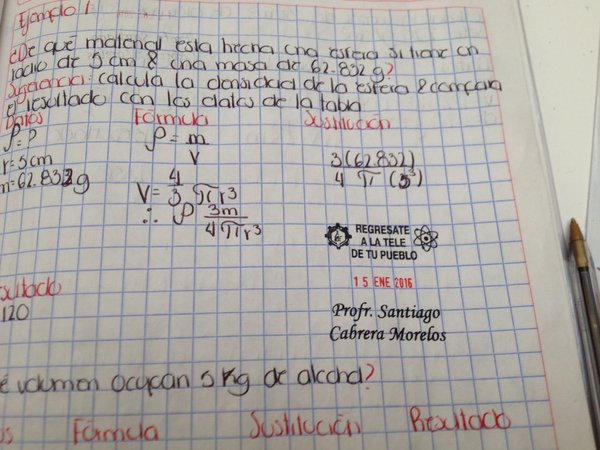 Ejemplo 1:
¿De qué material esta hecha una esfera si tiene un
radio de 5 cm & una masa de 62.832 g?
Sugerencia: calcula la densidad de la esfera & compara
el resultado con los datos de la tabla
Datos Fórmula Sustitución
ρ = ?
r = 5cm
m = 62.832g
ρ = m
V
V = 4/3 πr³
∴ ρ 3m
4πr³
3(62.832)
4 π (5³)
REGRESATE
A LA TELE
DE TU PUEBLO
15 ENE 2016
Profr. Santiago
Cabrera Morelos
120
volumen ocupan 5 kg de alcohol?
Fórmula Sustitución Resultado